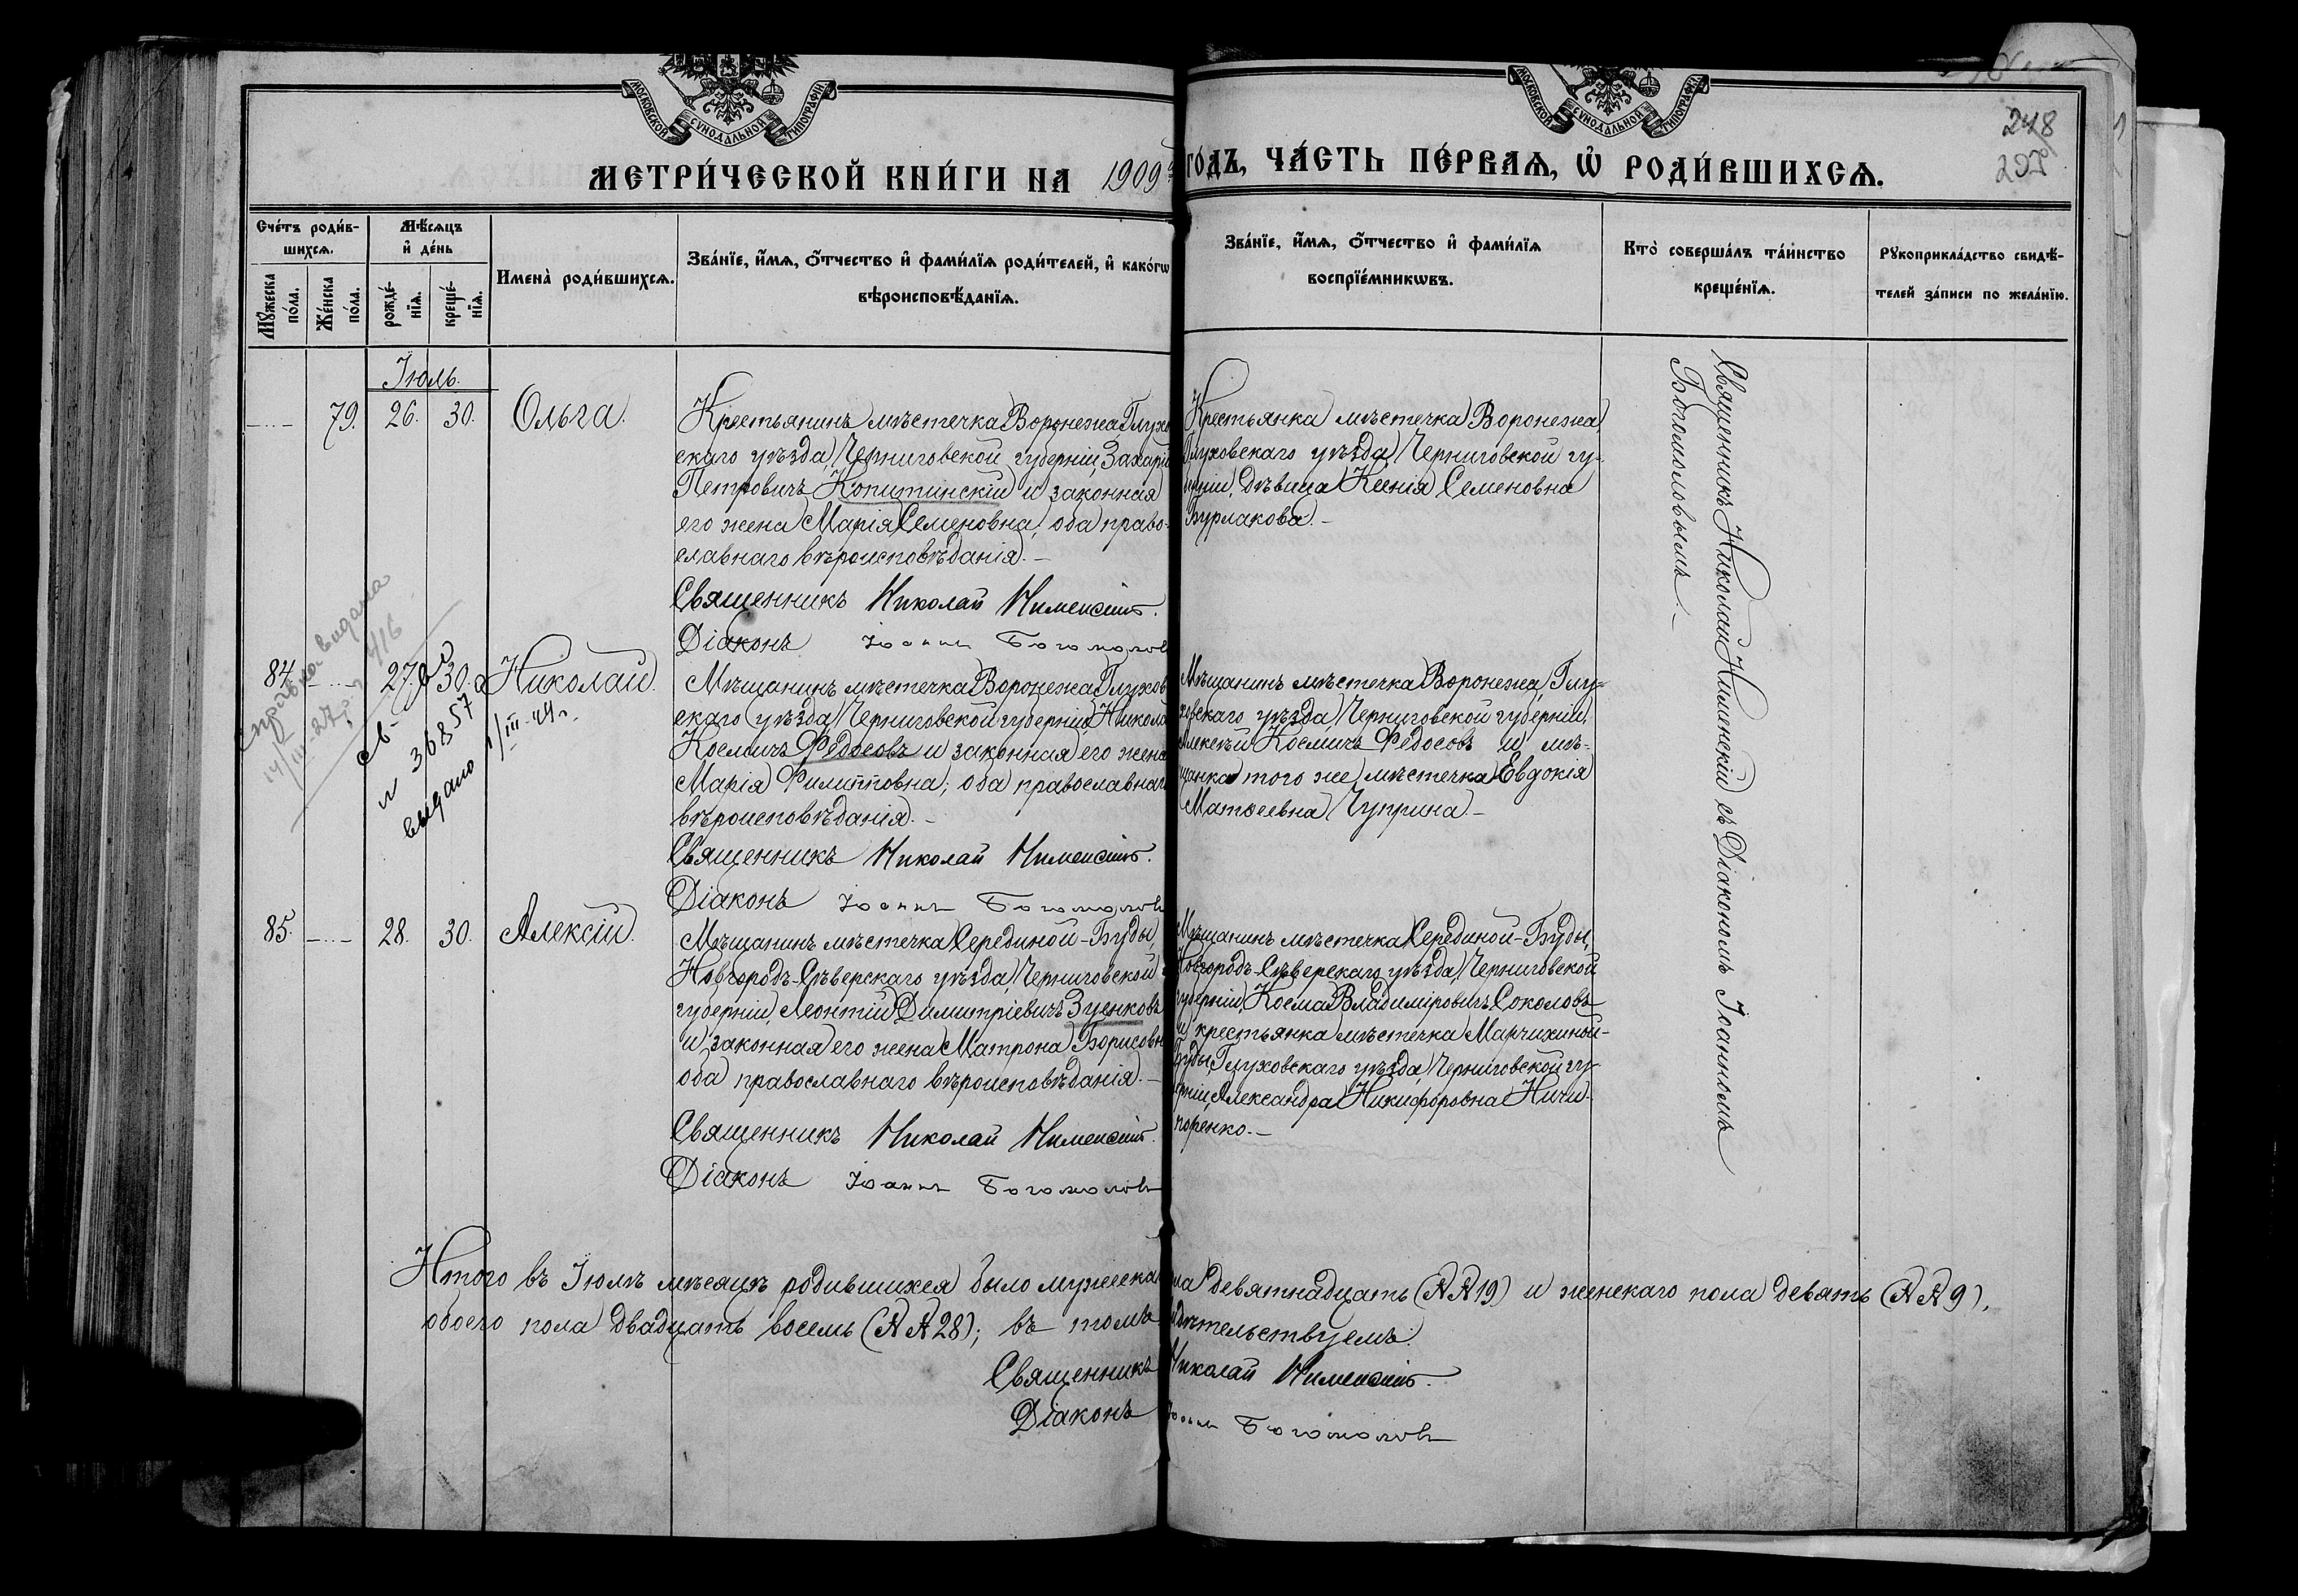 МОСКОВСКОЙ СѴНОДАЛЬНОЙ ТИПОГРАФІИ
МОСКОВСКОЙ СѴНОДАЛЬНОЙ ТИПОГРАФІИ
248
МЕТРИ́ЧЕСКОЙ КНИ́ГИ НА 1909й ГО́ДЪ, ЧА́СТЬ ПЕ́РВАѦ, Ѡ҆ РОДИ́ВШИХСѦ.
Сче́тъ роди́в-
шихсѧ.
Мꙋ́жеска по́ла.
Же́нска по́ла.
Мѣ́сѧцъ
и҆ де́нь
рожде́-
нїѧ.
креще́-
нїѧ.
Имена̀ роди́вшихсѧ.
Зва́нїе, и҆́мѧ, ѻ҆́тчество и҆ фами́лїѧ роди́телей, и҆ како́гѡ
вѣроисповѣ́данїѧ.
Зва́нїе, и҆́мѧ, ѻ҆́тчество и҆ фами́лїѧ
воспрїе́мникѡвъ.
Кто̀ соверша́лъ та́инство
креще́нїѧ.
Рꙋкоприкла́дство свидѣ́-
телей за́писи по жела́нїю.
Іюль.
79. 26. 30. Ольга.
Крестьянинъ мѣстечка Воронежа Глухо
скаго уѣзда, Черниговской губерніи, Захарій
Петровичъ Копитинскій и законная
его жена Марія Семеновна, оба право-
славнаго вѣроисповѣданія.-
Священникъ Николай Нименскій.
Діаконъ Іоаннъ Богомолов
Крестьянка мѣстечка Воронежа,
Глуховскаго уѣзда, Черниговской гу-
берніи, дѣвица Ксенія Семеновна
Бурлакова.-
84. 27. 30. Николай.
Мѣщанинъ мѣстечка Воронежа Глухов
скаго уѣзда, Черниговской губерніи, Никола
Космичъ Федосовъ и законная его жена
Марія Филипповна; оба православнаг
вѣроисповѣданія.-
Священникъ Николай Нименскій.
Діаконъ Іоаннъ Богомолов
Мѣщанинъ мѣстечка Воронежа, Глу-
ховскаго уѣзда, Черниговской губерніи,
Алексѣй Космичъ Федосовъ и мѣ-
щанка того же мѣстечка Евдокія
Матѳеевна Чуприна.-
справка видана
14/III-27 р.
св-во
N 36857
выдано 1/III-49г.
85. 28. 30. Алексій.
Мѣщанинъ мѣстечка Серединой-Буды,
Новгородъ-Сѣверскаго уѣзда, Черниговской
губерніи, Леонтій Димитріевичъ Зуенковъ
и законная его жена Матрона Борисовн
оба православнаго вѣроисповѣданія.-
Священникъ Николай Нименскій.
Діаконъ Іоаннъ Богомоловъ
Мѣщанинъ мѣстечка Серединой-Буды,
Новгородъ-Сѣверскаго уѣзда, Черниговской
губерніи, Косма Владиміровичъ Соколовъ
и крестьянка мѣстечка Марчихиной-
Буды, Глуховскаго уѣзда, Черниговской гу-
берніи, Александра Никифоровна Ничи-
поренко.-
Священникъ Николай Нименскій съ Діакономъ Іоанномъ
Богомоловымъ.-
Итого въ Іюлѣ мѣсяцѣ родившихся было мужеска пола девятнадцать (№№19) и женскаго пола девять (№№9),
обоего пола двадцать восемь (№№28); въ томъ свидѣтельствуемъ.
Священникъ Николай Нименскій.
Діаконъ Іоаннъ Богомоловъ